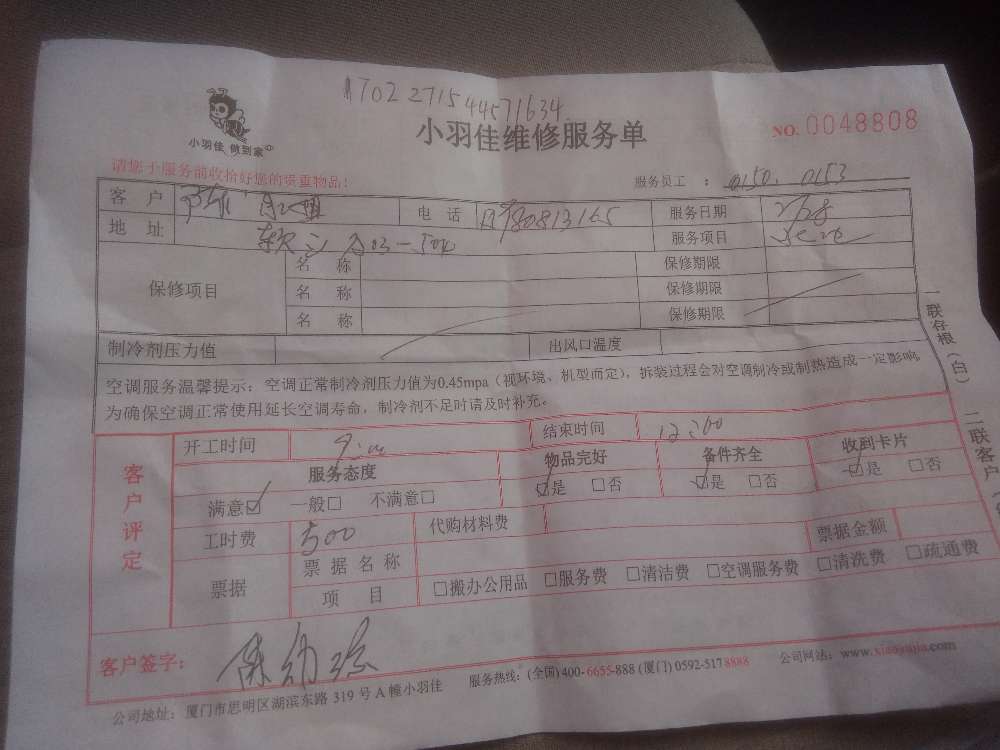 170227154457 1634
小羽佳 做到家
小羽佳维修服务单
NO. 0048808
请您于服务前收拾好您的贵重物品!
服务员工 : 0150. 0153
客 户 电 话 服务日期 2/28
地 址 服务项目
保修项目 名 称 保修期限
名 称 保修期限
名 称 保修期限
制冷剂压力值 出风口温度
空调服务温馨提示:空调正常制冷剂压力值为0.45mpa(视环境、机型而定),拆装过程会对空调制冷或制热造成一定影响
为确保空调正常使用延长空调寿命,制冷剂不足时请及时补充。
一联存根(白)
二联客户
客户评定
开工时间 9:00 结束时间 12:00
服务态度 物品完好 备件齐全 收到卡片
满意☑ 一般□ 不满意□ ☑是 □否 ☑是 □否 ☑是 □否
工时费 500 代购材料费 票据金额
票据 票 据 名 称
项 目 □搬办公用品 □服务费 □清洁费 □空调服务费 □清洗费 □疏通费
客户签字:
公司地址:厦门市思明区湖滨东路 319 号 A 幢小羽佳 服务热线:(全国)400-6655-888 (厦门) 0592-5178888 公司网站:www.xiaoyujia.com